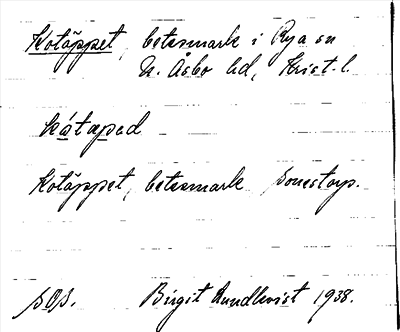 Kotäppet, betesmark i Rya sn
N. Åsbo hd, Krist. l.
kátapɛd
Kotäppet, betesmark Sonestorp.
SOS. Birgit Lundkvist 1938.